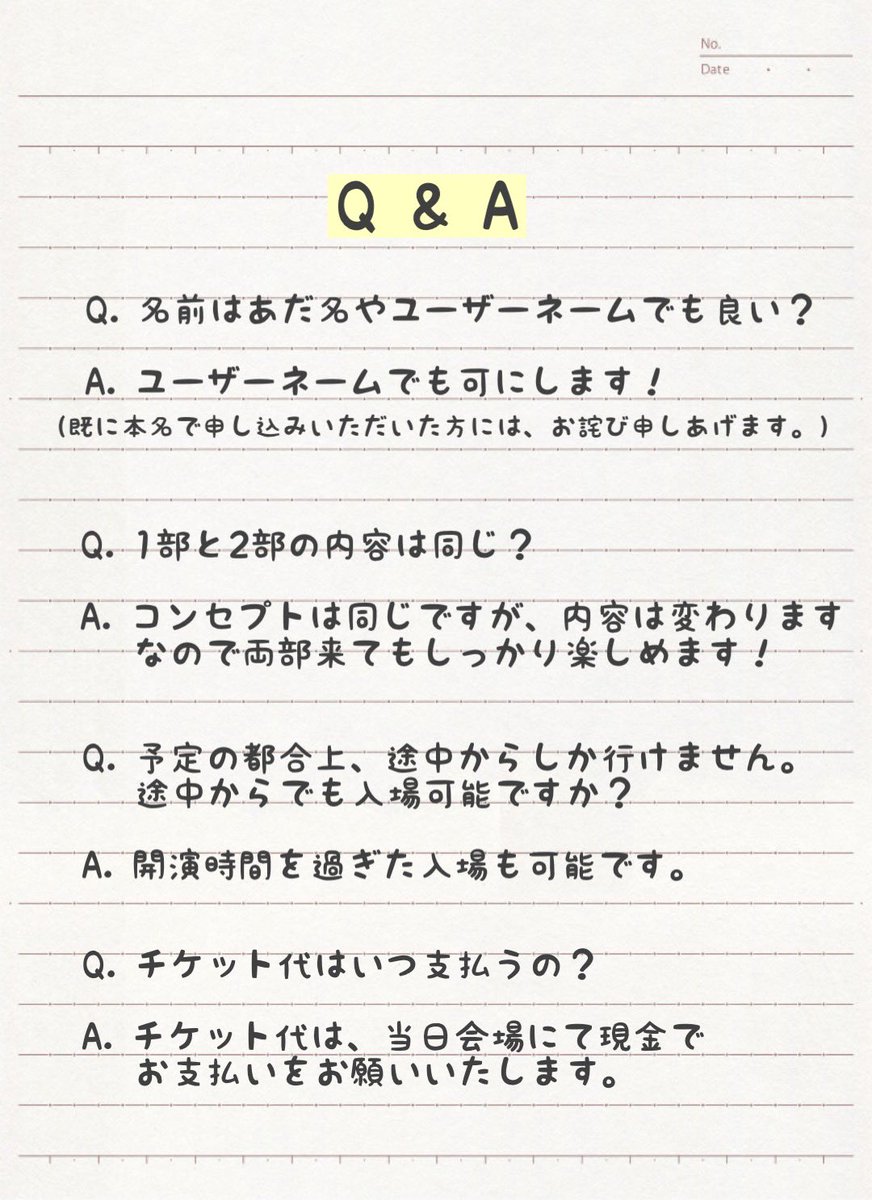 No.
Date ・ ・
Q & A
Q. 名前はあだ名やユーザーネームでも良い？
A. ユーザーネームでも可にします！
(既に本名で申し込みいただいた方には、お詫び申しあげます。)
Q. 1部と2部の内容は同じ？
A. コンセプトは同じですが、内容は変わります
なので両部来てもしっかり楽しめます！
Q. 予定の都合上、途中からしか行けません。
途中からでも入場可能ですか？
A. 開演時間を過ぎた入場も可能です。
Q. チケット代はいつ支払うの？
A. チケット代は、当日会場にて現金で
お支払いをお願いいたします。